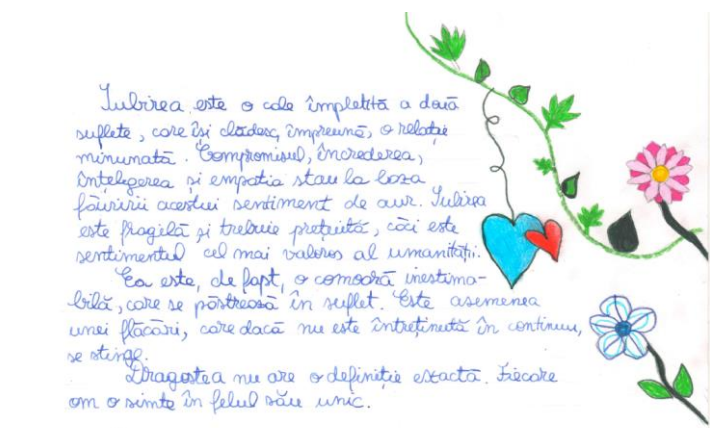 Iubirea este o cale împletită a două
suflete, care își clădesc, împreună, o relație
minunată. Compromisul, încrederea,
înțelegerea și empatia stau la baza
făuririi acestui sentiment de aur. Iubirea
este fragilă și trebuie prețuită, căci este
sentimentul cel mai valoros al umanității.
Ea este, de fapt, o comoară inestima-
bilă, care se păstrează în suflet. Este asemenea
unei flăcări, care dacă nu este întreținută în continuu,
se stinge.
Dragostea nu are o definiție exactă. Fiecare
om o simte în felul său unic.